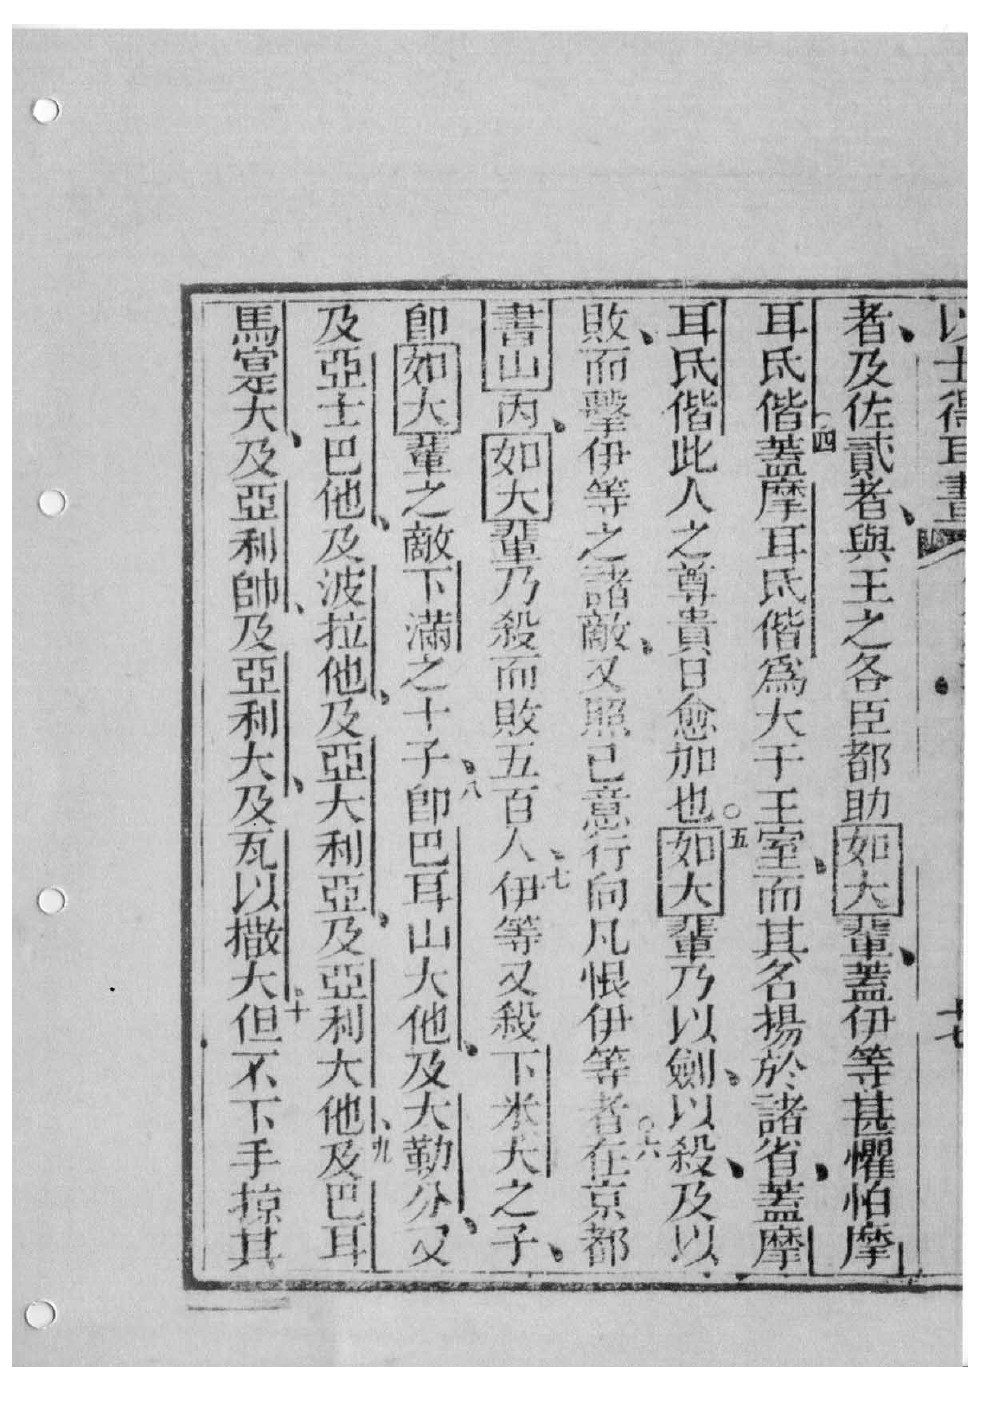 以士得耳書
者及佐貳者與王之各臣都助如大輩蓋伊等甚懼怕摩
耳氐偕四蓋摩耳氐偕爲大于王室而其名揚於諸省蓋摩
耳氐偕此人之尊貴日愈加也○五如大輩乃以劍以殺及以
敗而擊伊等之諸敵又照己意行向凡恨伊等者○六在京都
書山內如大輩乃殺而敗五百人七伊等又殺下米大之子
卽如大輩之敵下滿之十子八卽巴耳山大他及大勒分又
及亞士巴他及波拉他及亞大利亞及亞利大他九及巴耳
馬寔大及亞利帥及亞利大及瓦以撒大十但不下手掠其